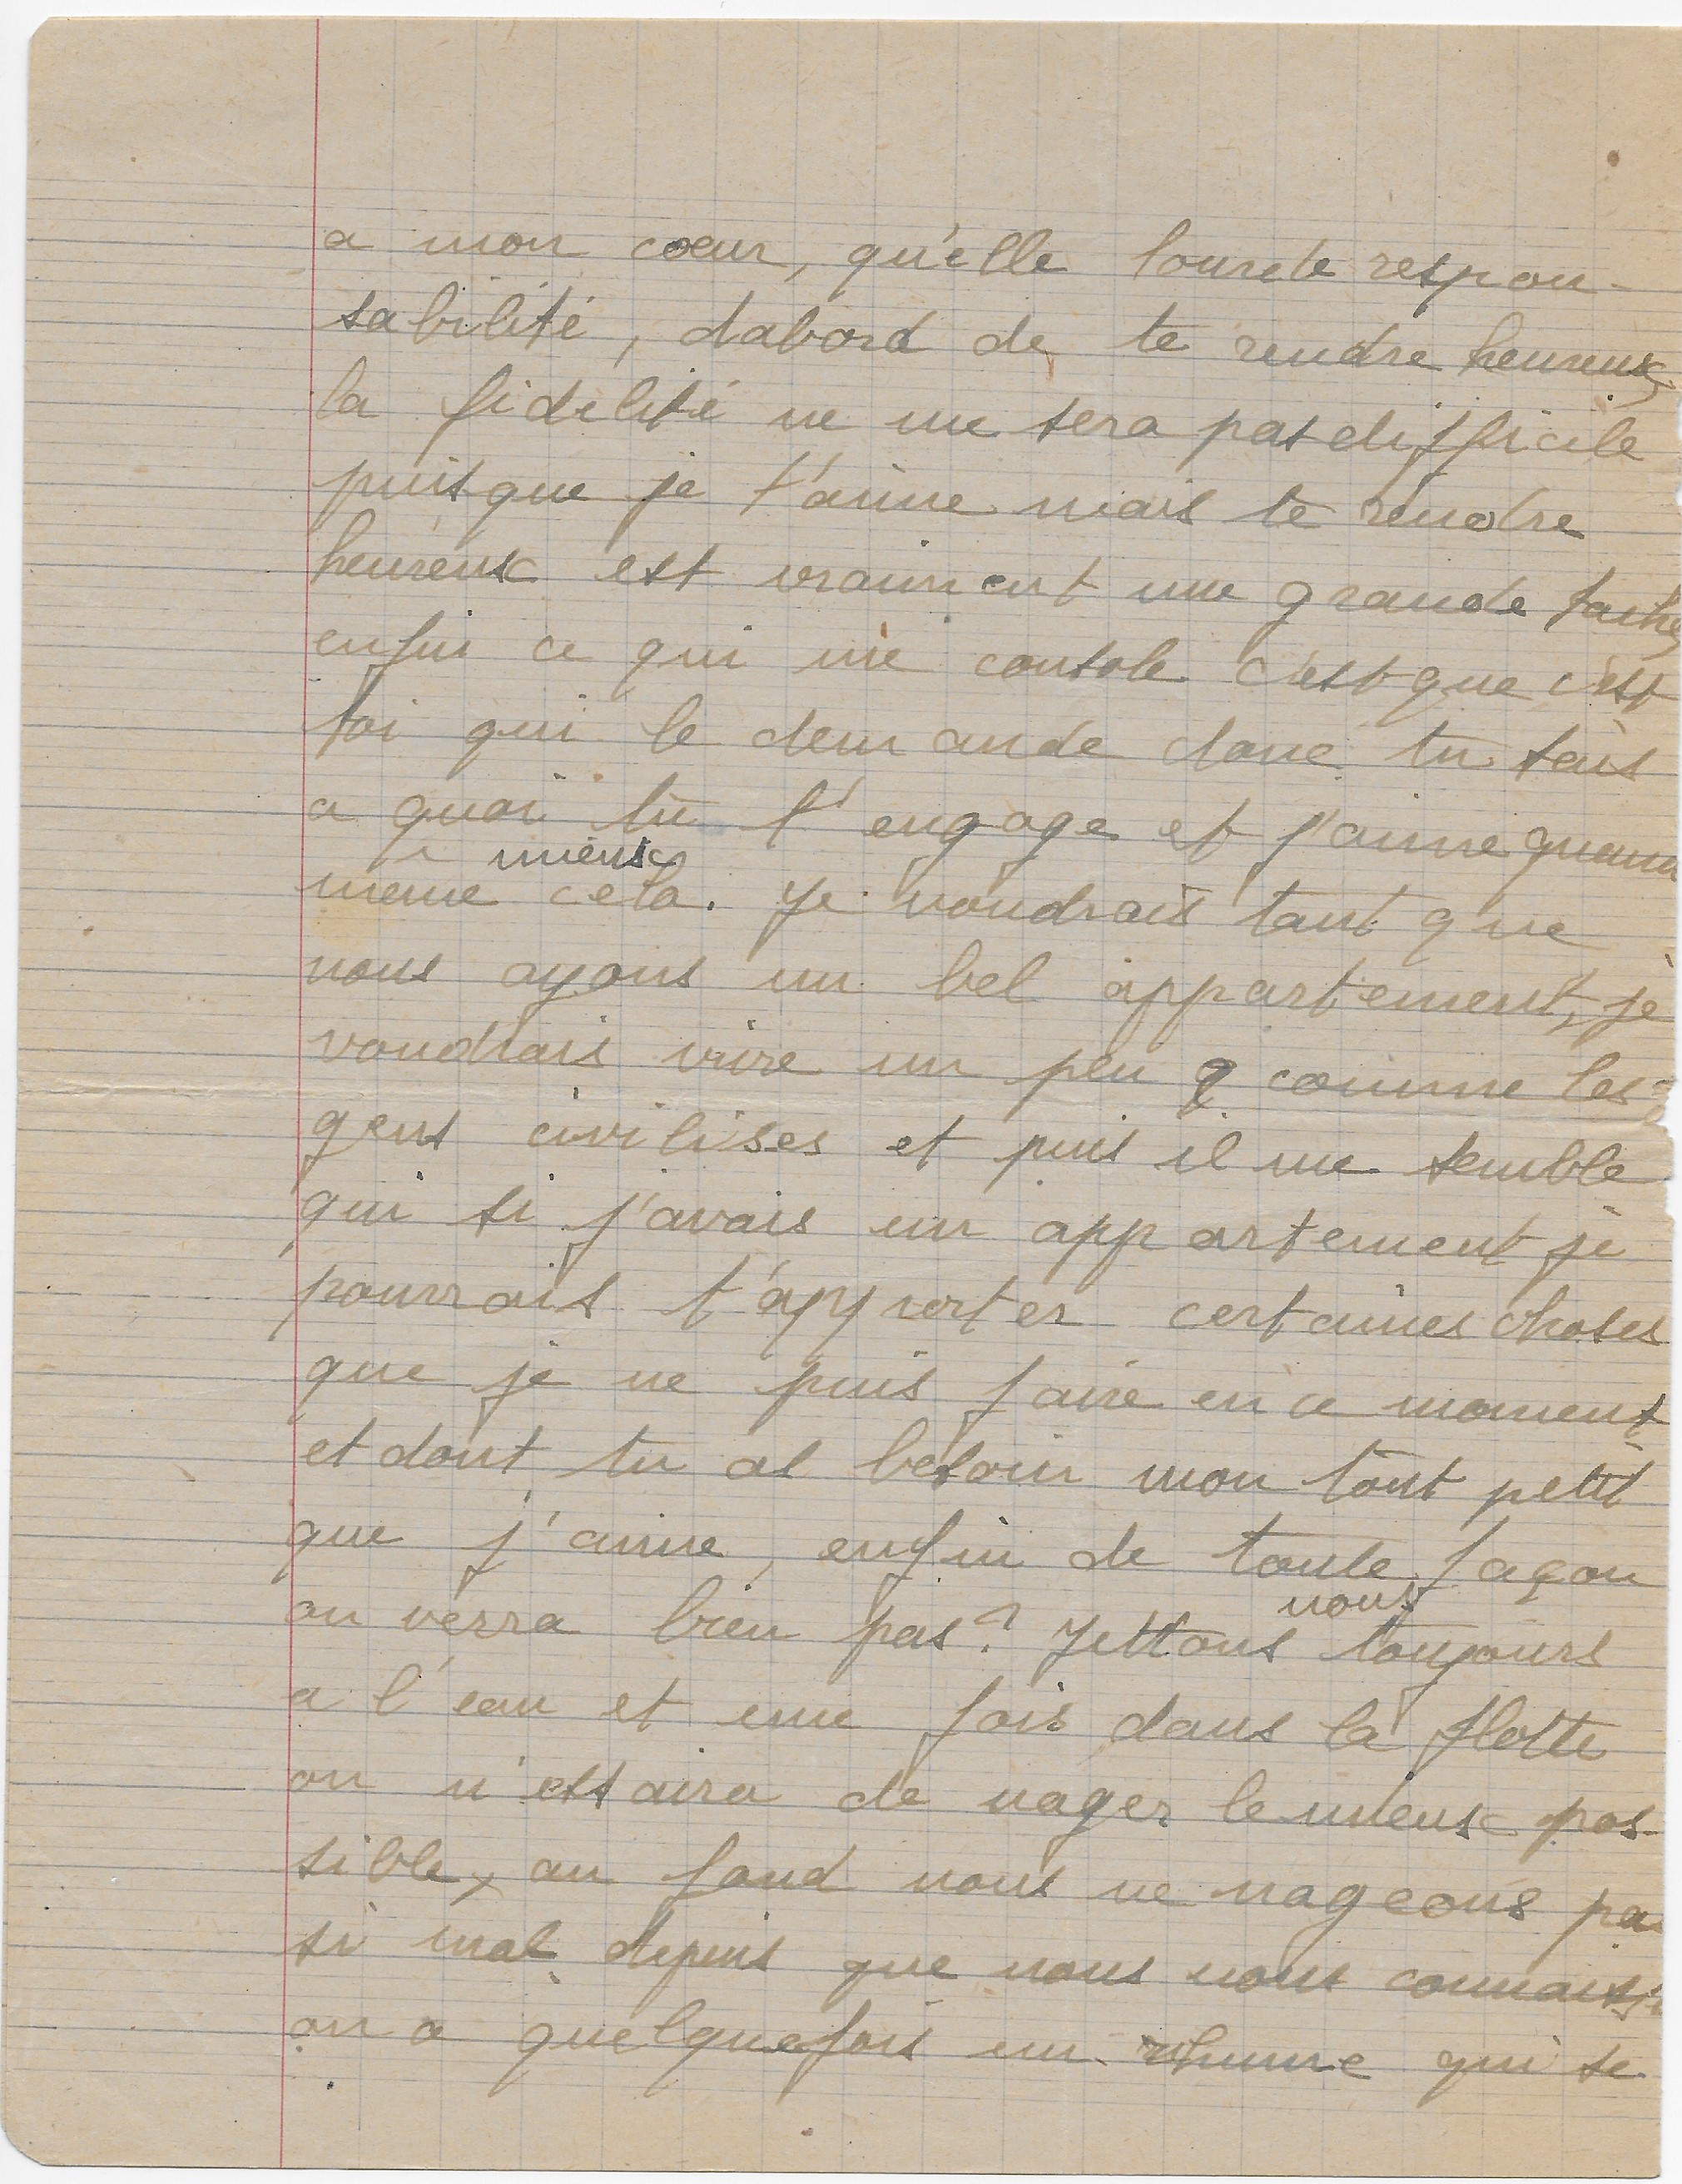 a mon cœur, qu'elle lourde respon-
sabilité, dabord de te rendre heureux,
la fidélité ne me sera pas difficile
puisque je t'aime mais te rendre
heureux est vraiment une grande tache,
enfin ce qui me console c'est que c'est
toi qui le demande donc tu sais
a quoi tu t'engage et j'aime quand
mieux
meme cela. Je voudrais tant que
nous ayons un bel appartement, je
voudrais vivre un peu comme les
gens civilises et puis il me semble
qui si j'avais un appartement je
pourrais t'apporter certaines choses
que je ne puis faire en ce moment
et dont tu as besoin mon tout petit
que j'aime, enfin de toute façon
nous
on verra bien pas? Jettons toujours
a l'eau et une fois dans la flotte
on n'essaira de nager le mieux pos-
sible, au fond nous ne nageons pas
si mal depuis que nous nous
on a quelquefois un rhume qui se